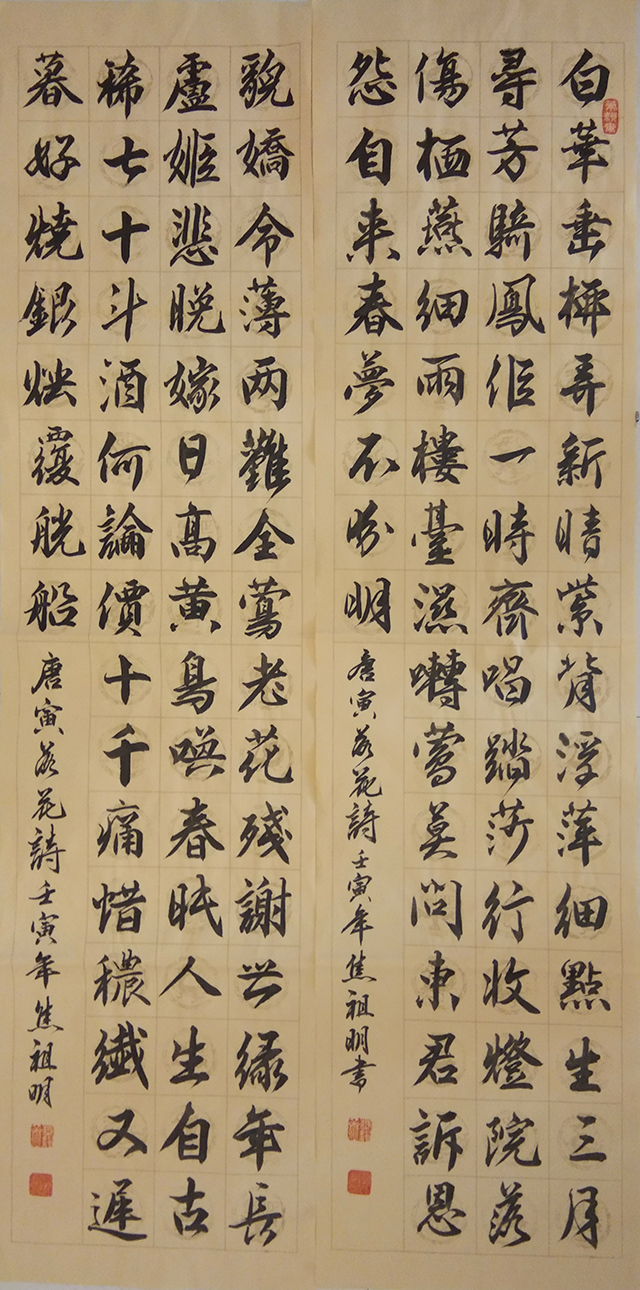 白華垂桺弄新晴紫背浮萍細點生三月
尋芳騎鳳侣一時齊唱踏莎行收燈院落
傷栖燕細雨樓臺濕囀鶯莫問東君訴恩
怨自来春夢不分明
唐寅落花詩壬寅年焦祖明書
貌嬌命薄两難全鶯老花殘謝世緣年長
盧姬悲晚嫁日高黄鳥喚春眠人生自古
稀七十斗酒何論價十千痛惜穠纖又遲
暮好燒銀燭覆觥船
唐寅落花詩壬寅年焦祖明